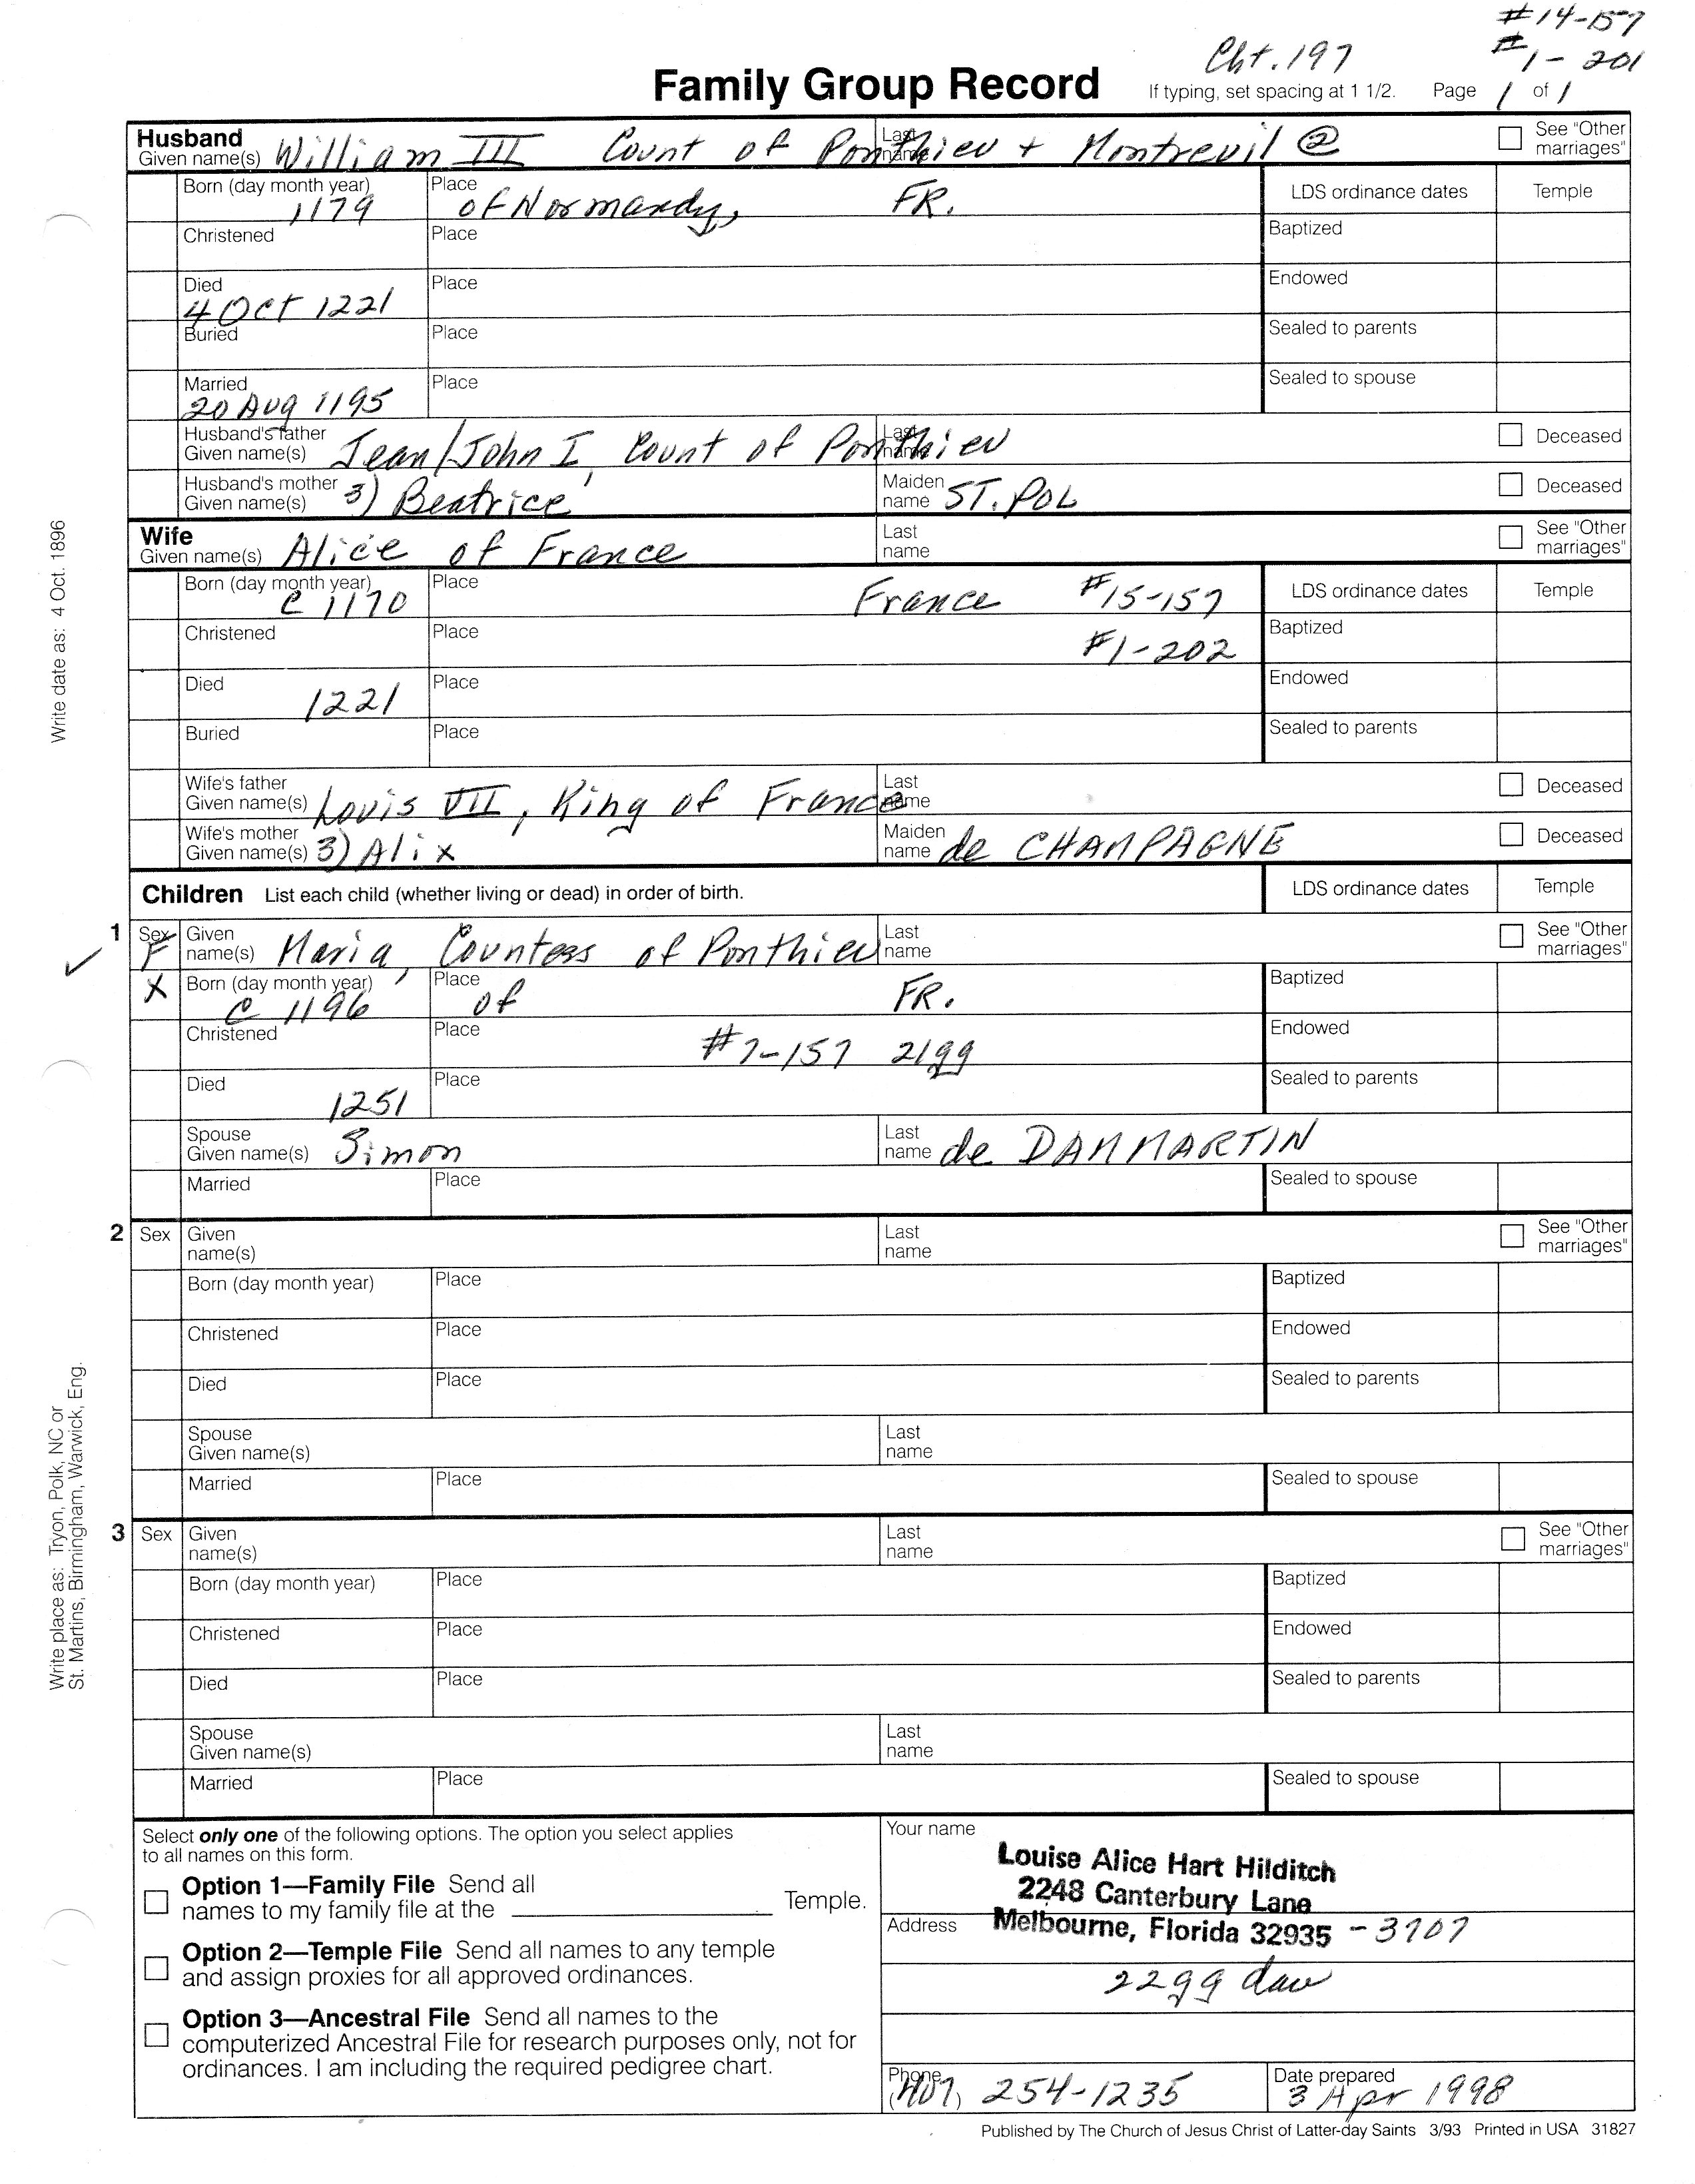 #14-157
Cht. 197 #1-201
Family Group Record If typing, set spacing at 1 1/2. Page 1 of 1
Husband
Given name(s) William III Count of Ponthieu + Montrevil ② Last name See "Other marriages"
Born (day month year) 1179 Place of Normandy, FR. LDS ordinance dates Temple
Christened Place Baptized
Died 4 Oct 1221 Place Endowed
Buried Place Sealed to parents
Married 20 Aug 1195 Place Sealed to spouse
Husband's father Given name(s) Jean/John I, Count of Ponthieu Last name Deceased
Husband's mother Given name(s) 3) Beatrice Maiden name ST. POL Deceased
Wife
Given name(s) Alice of France Last name See "Other marriages"
Born (day month year) C 1170 Place France #15-157 LDS ordinance dates Temple
Christened Place #1-202 Baptized
Died 1221 Place Endowed
Buried Place Sealed to parents
Wife's father Given name(s) Louis VII, King of France Last name Deceased
Wife's mother Given name(s) 3) Alix Maiden name de CHAMPAGNE Deceased
Children List each child (whether living or dead) in order of birth. LDS ordinance dates Temple
1 Sex F Given name(s) Maria, Countess of Ponthieu Last name See "Other marriages"
X Born (day month year) C 1196 Place of FR. Baptized
Christened Place #7-157 21gg Endowed
Died 1251 Place Sealed to parents
Spouse Given name(s) Simon Last name de DAMMARTIN
Married Place Sealed to spouse
2 Sex Given name(s) Last name See "Other marriages"
Born (day month year) Place Baptized
Christened Place Endowed
Died Place Sealed to parents
Spouse Given name(s) Last name
Married Place Sealed to spouse
3 Sex Given name(s) Last name See "Other marriages"
Born (day month year) Place Baptized
Christened Place Endowed
Died Place Sealed to parents
Spouse Given name(s) Last name
Married Place Sealed to spouse
Select only one of the following options. The option you select applies
to all names on this form.
Option 1—Family File Send all
names to my family file at the Temple.
Option 2—Temple File Send all names to any temple
and assign proxies for all approved ordinances.
Option 3—Ancestral File Send all names to the
computerized Ancestral File for research purposes only, not for
ordinances. I am including the required pedigree chart.
Your name Louise Alice Hart Hilditch
2248 Canterbury Lane
Address Melbourne, Florida 32935 -3707
22gg dau
Phone (407) 254-1235 Date prepared 3 Apr 1998
Published by The Church of Jesus Christ of Latter-day Saints 3/93 Printed in USA 31827
Write date as: 4 Oct. 1896
Write place as: Tryon, Polk, NC or
St. Martins, Birmingham, Warwick, Eng.